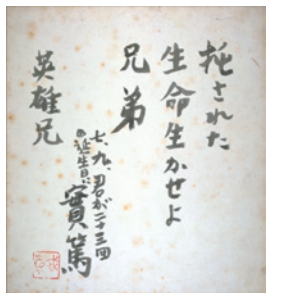 托された
生命生かせよ
兄弟
七、九、君が二十三回
の誕生日に
實篤
英雄兄